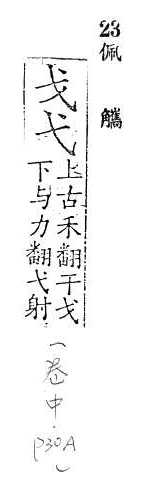 23
佩觿
戈弋
上古禾翻干戈
下与力翻弋射
（卷中.p30A）